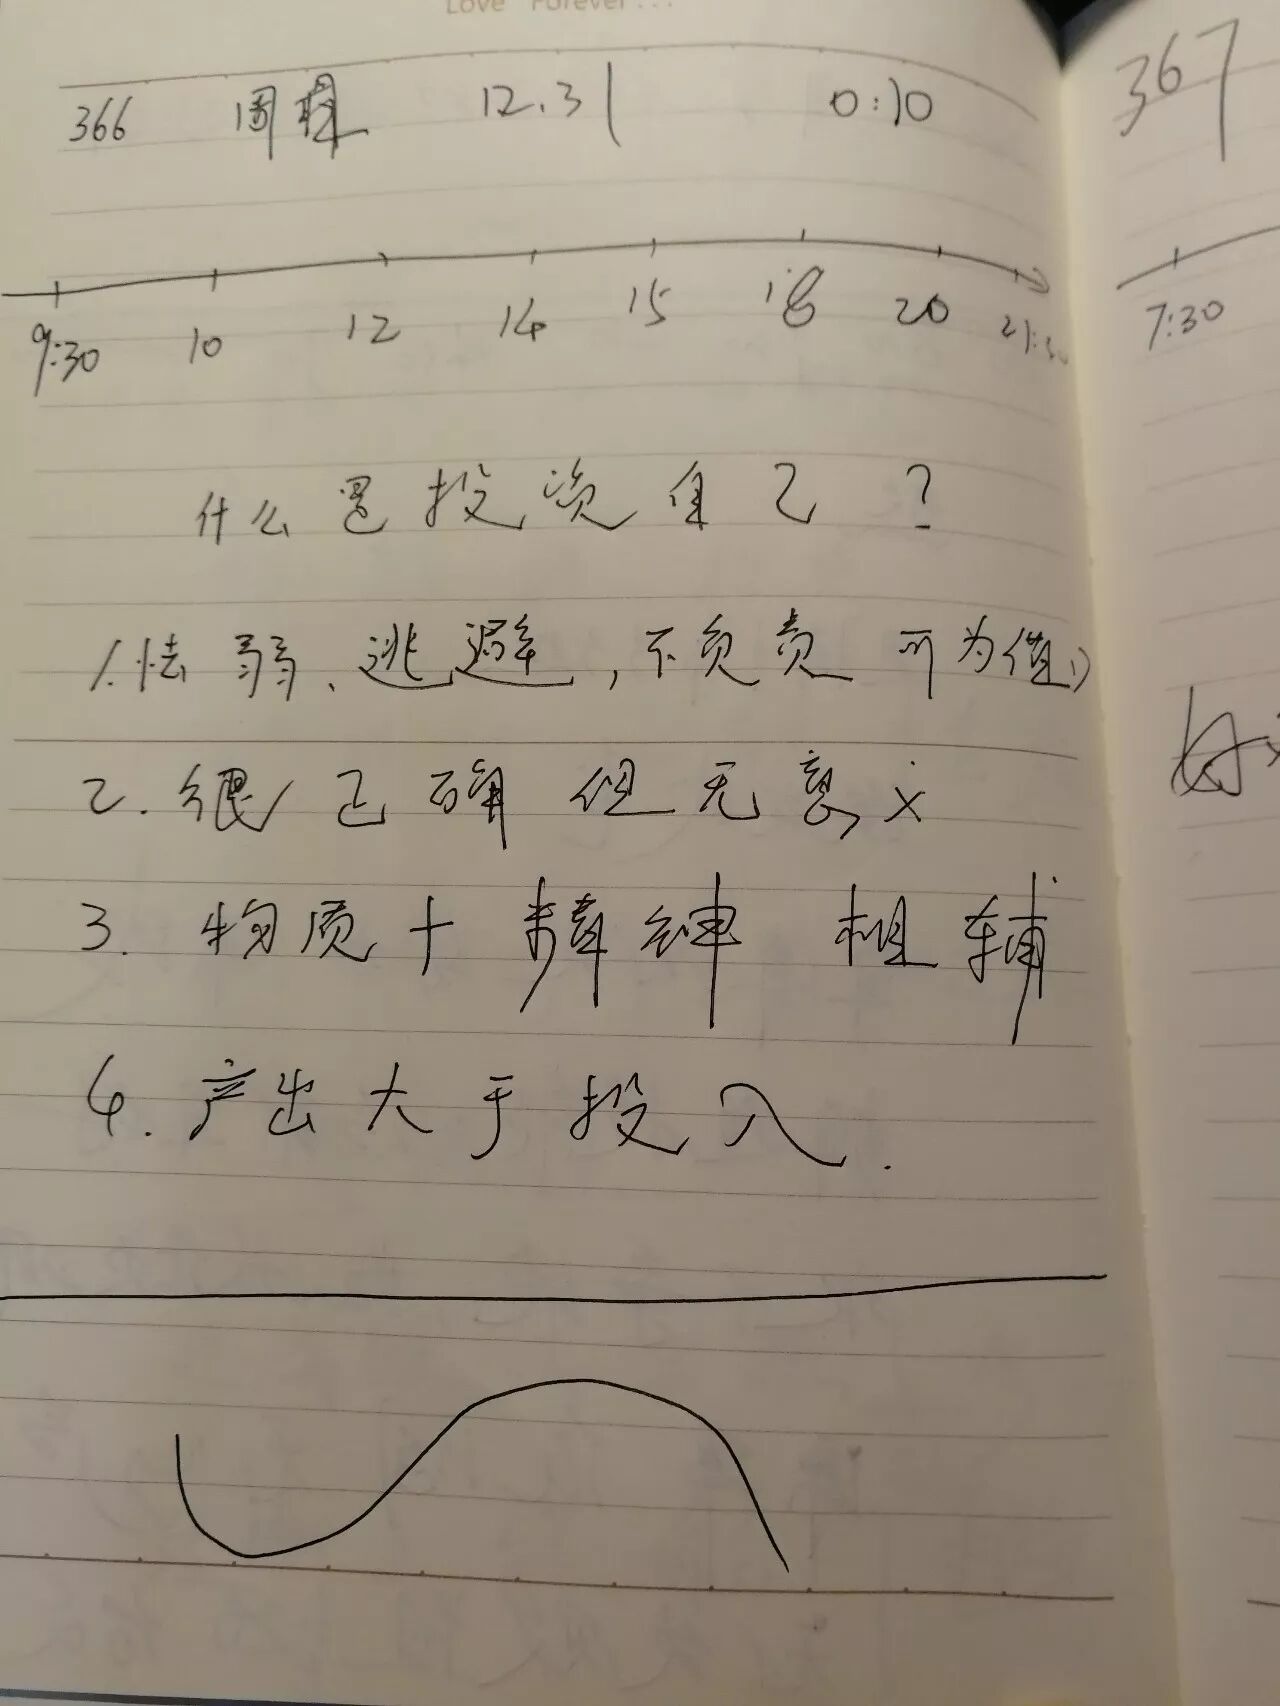 Love Forever...
366 12.31 0:10
9:30 10 12 14 15 18 20 21:30
什么是投资自己?
1.怯弱、逃避,不负责 可为值
2.很正确但无意义
3.物质+精神 相辅
4.产出大于投入.
367
7:30
好